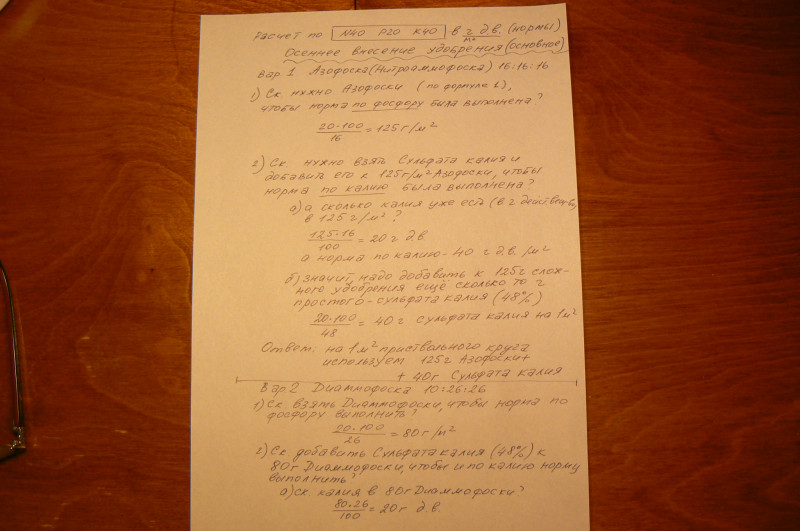 Расчет по N40 P20 K40 в г д.в. (нормы)
м²
Осеннее внесение удобрения (основное)
Вар. 1 Азофоска (Нитроаммофоска) 16:16:16
1) Ск. нужно Азофоски (по формуле b),
чтобы норма по фосфору была выполнена?
20·100
16
= 125 г/м²
2) Ск. нужно взять Сульфата калия и
добавить его к 125 г/м² Азофоски, чтобы
норма по калию была выполнена?
а) а сколько калия уже есть (в г действ. в)
в 125 г/м²?
125·16
100
= 20 г д.в.
а норма по калию - 40 г д.в. /м²
б) значит, надо добавить к 125г слож-
ного удобрения ещё сколько то г
простого - сульфата калия (48%)
20·100
48
= 40 г сульфата калия на 1 м²
Ответ: на 1 м² приствольного круга
используем 125г Азофоски +
+ 40г Сульфата калия
Вар 2 Диаммофоска 10:26:26
1) Ск. взять Диаммофоски, чтобы норма по
фосфору выполнить?
20·100
26
= 80 г/м²
2) Ск добавить Сульфата калия (48%) к
80г Диаммофоски, чтобы и по калию норму
выполнить?
а) ск. калия в 80г Диаммофоски?
80·26
100
= 20г д.в.